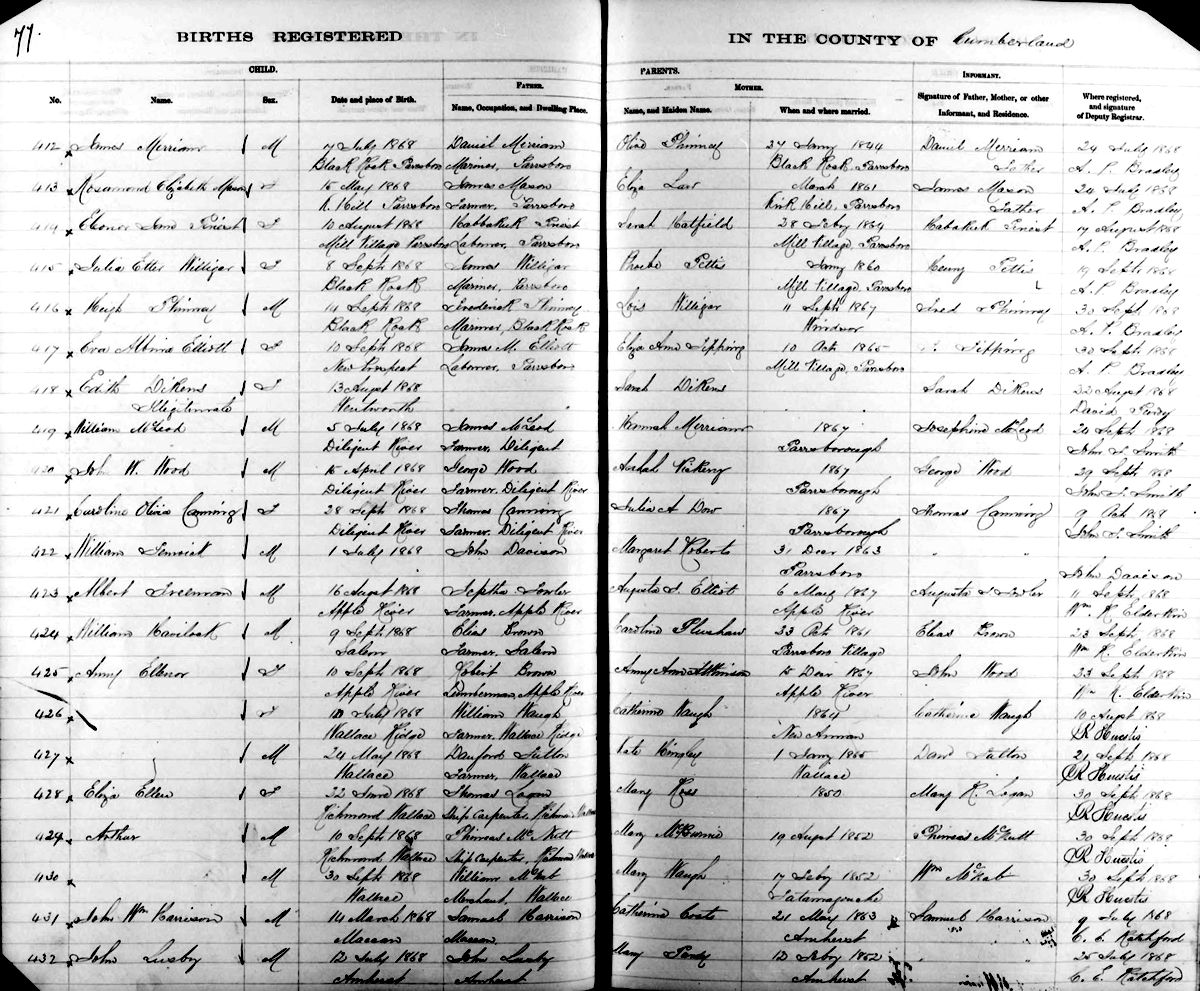 77.
BIRTHS REGISTERED IN THE COUNTY OF Cumberland
CHILD. PARENTS.
FATHER. MOTHER. INFORMANT.
No. Name. Sex. Date and place of Birth. Name, Occupation, and Dwelling Place. Name, and Maiden Name. When and where married. Signature of Father, Mother, or other Informant, and Residence. Where registered, and signature of Deputy Registrar.
412 James Merriam M 7 July 1868 Daniel Merriam Olive Phinney 27 Jany 1844 Daniel Merriam 24 July 1868
Black Rock Parrsboro Mariner, Parrsboro Black Rock, Parrsboro Father A. P. Bradley
413 Rosamond Elizabeth Mason F 15 May 1868 James Mason Eliza Law March 1861 James Mason 24 July 1868
K. Hill Parrsboro Farmer, Parrsboro Kirk Hill, Parrsboro Father A. P. Bradley
414 Eleonor Jane F 10 August 1868 Habbakuk Sarah Hatfield 28 Feby 1864 Habakuk 17 August 1868
Mill Village Parrsboro Laborer, Parrsboro Mill Village, Parrsboro A. P. Bradley
415 Julia Etter Willigar F 8 Sept 1868 James Willigar Phoebe Pettis Jany 1860 Henry Pettis 19 Sept 1868
Black Rock Mariner, Parrsboro Mill Village, Parrsboro A. P. Bradley
416 Hugh Phinney M 14 Sept 1868 Frederick Phinney Lois Willigar 11 Sept 1867 Fred Phinney 30 Sept 1868
Black Rock Mariner, Black Rock Windsor A. P. Bradley
417 Eva Albina Elliott F 10 Sept 1868 James M. Elliott Eliza Ann Tipping 10 Oct 1865 Tipping 30 Sept 1868
New Prospect Laborer, Parrsboro Mill Village, Parrsboro A. P. Bradley
418 Edith Dikens F 13 August 1868 Sarah Dikens Sarah Dikens 22 August 1868
Illegitimate Wentworth David Purdy
419 William McLeod M 5 July 1868 James McLeod Hannah Merriam 1867 Josephine McLeod 24 Sept 1868
Diligent River Farmer, Diligent Parrsborough John S. Smith
420 John W. Wood M 15 April 1868 George Wood Vickery 1867 George Wood 29 Sept 1868
Diligent River Farmer, Diligent River Parrsborough John S. Smith
421 Caroline Olivia Canning F 28 Sept 1868 Thomas Canning Julia A Dow 1867 Thomas Canning 9 Oct 1868
Diligent River Farmer, Diligent River Parrsborough John S. Smith
422 William Fenwick M 1 July 1868 John Davison Margaret Roberts 31 Decr 1863 " "
Parrsboro John Davison
423 Albert Freeman M 16 August 1868 Jeptha Fowler Augusta S. Elliot 6 May 1867 Augusta S Fowler 11 Sept 1868
Apple River Farmer, Apple River Apple River Wm R. Elderkin
424 William Havilock M 9 Sept 1868 Elias Brown Caroline 23 Oct 1861 Elias Brown 23 Sept 1868
Salem Farmer, Salem Parrsboro Village Wm R. Elderkin
425 Anny Ellenor F 10 Sept 1868 Robert Brown Anny Ann Atkinson 15 Decr 1867 John Wood 23 Sept 1868
Apple River Lumberman, Apple River Apple River Wm R. Elderkin
426 F 10 July 1868 William Waugh Catherine Waugh 1864 Catherine Waugh 10 August 1868
Wallace Ridge Farmer, Wallace Ridge New Annan R Huestis
427 M 24 May 1868 Danford Fulton Kate Kingley 1 Jany 1866 Danf Fulton 21 Sept 1868
Wallace Farmer, Wallace Wallace R Huestis
428 Eliza Ellen F 22 June 1868 Thomas Logan Mary Ross 1850 Mary R. Logan 30 Sept 1868
Richmond Wallace Ship Carpenter, Richmond Wallace R Huestis
429 Arthur M 10 Sept 1868 Thomas McNutt Mary McBurnie 19 August 1852 Thomas McNutt 30 Sept 1868
Richmond Wallace Ship Carpenter, Richmond Wallace R Huestis
430 M 30 Sept 1868 William McNab Mary Waugh 17 Feby 1852 Wm McNab 30 Sept 1868
Wallace Merchant, Wallace Tatamagouche R Huestis
431 John Wm Harrison M 14 March 1868 Samuel Harrison Catherine Coats 21 May 1863 Samuel Harrison 9 July 1868
Maccan Maccan Amherst C. E. Ratchford
432 John Lusby M 12 July 1868 John Lusby Mary Purdy 12 Feby 1852 " " 25 July 1868
Amherst Amherst Amherst C. E. Ratchford